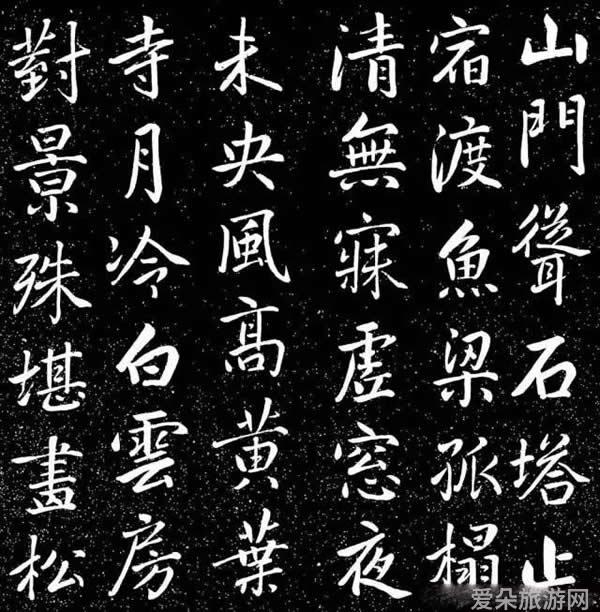 山門聳石塔止
宿渡魚梁孤榻
清無寐虛窓夜
未央風高黄葉
寺月冷白雲房
對景殊堪畫松
爱朵旅游网